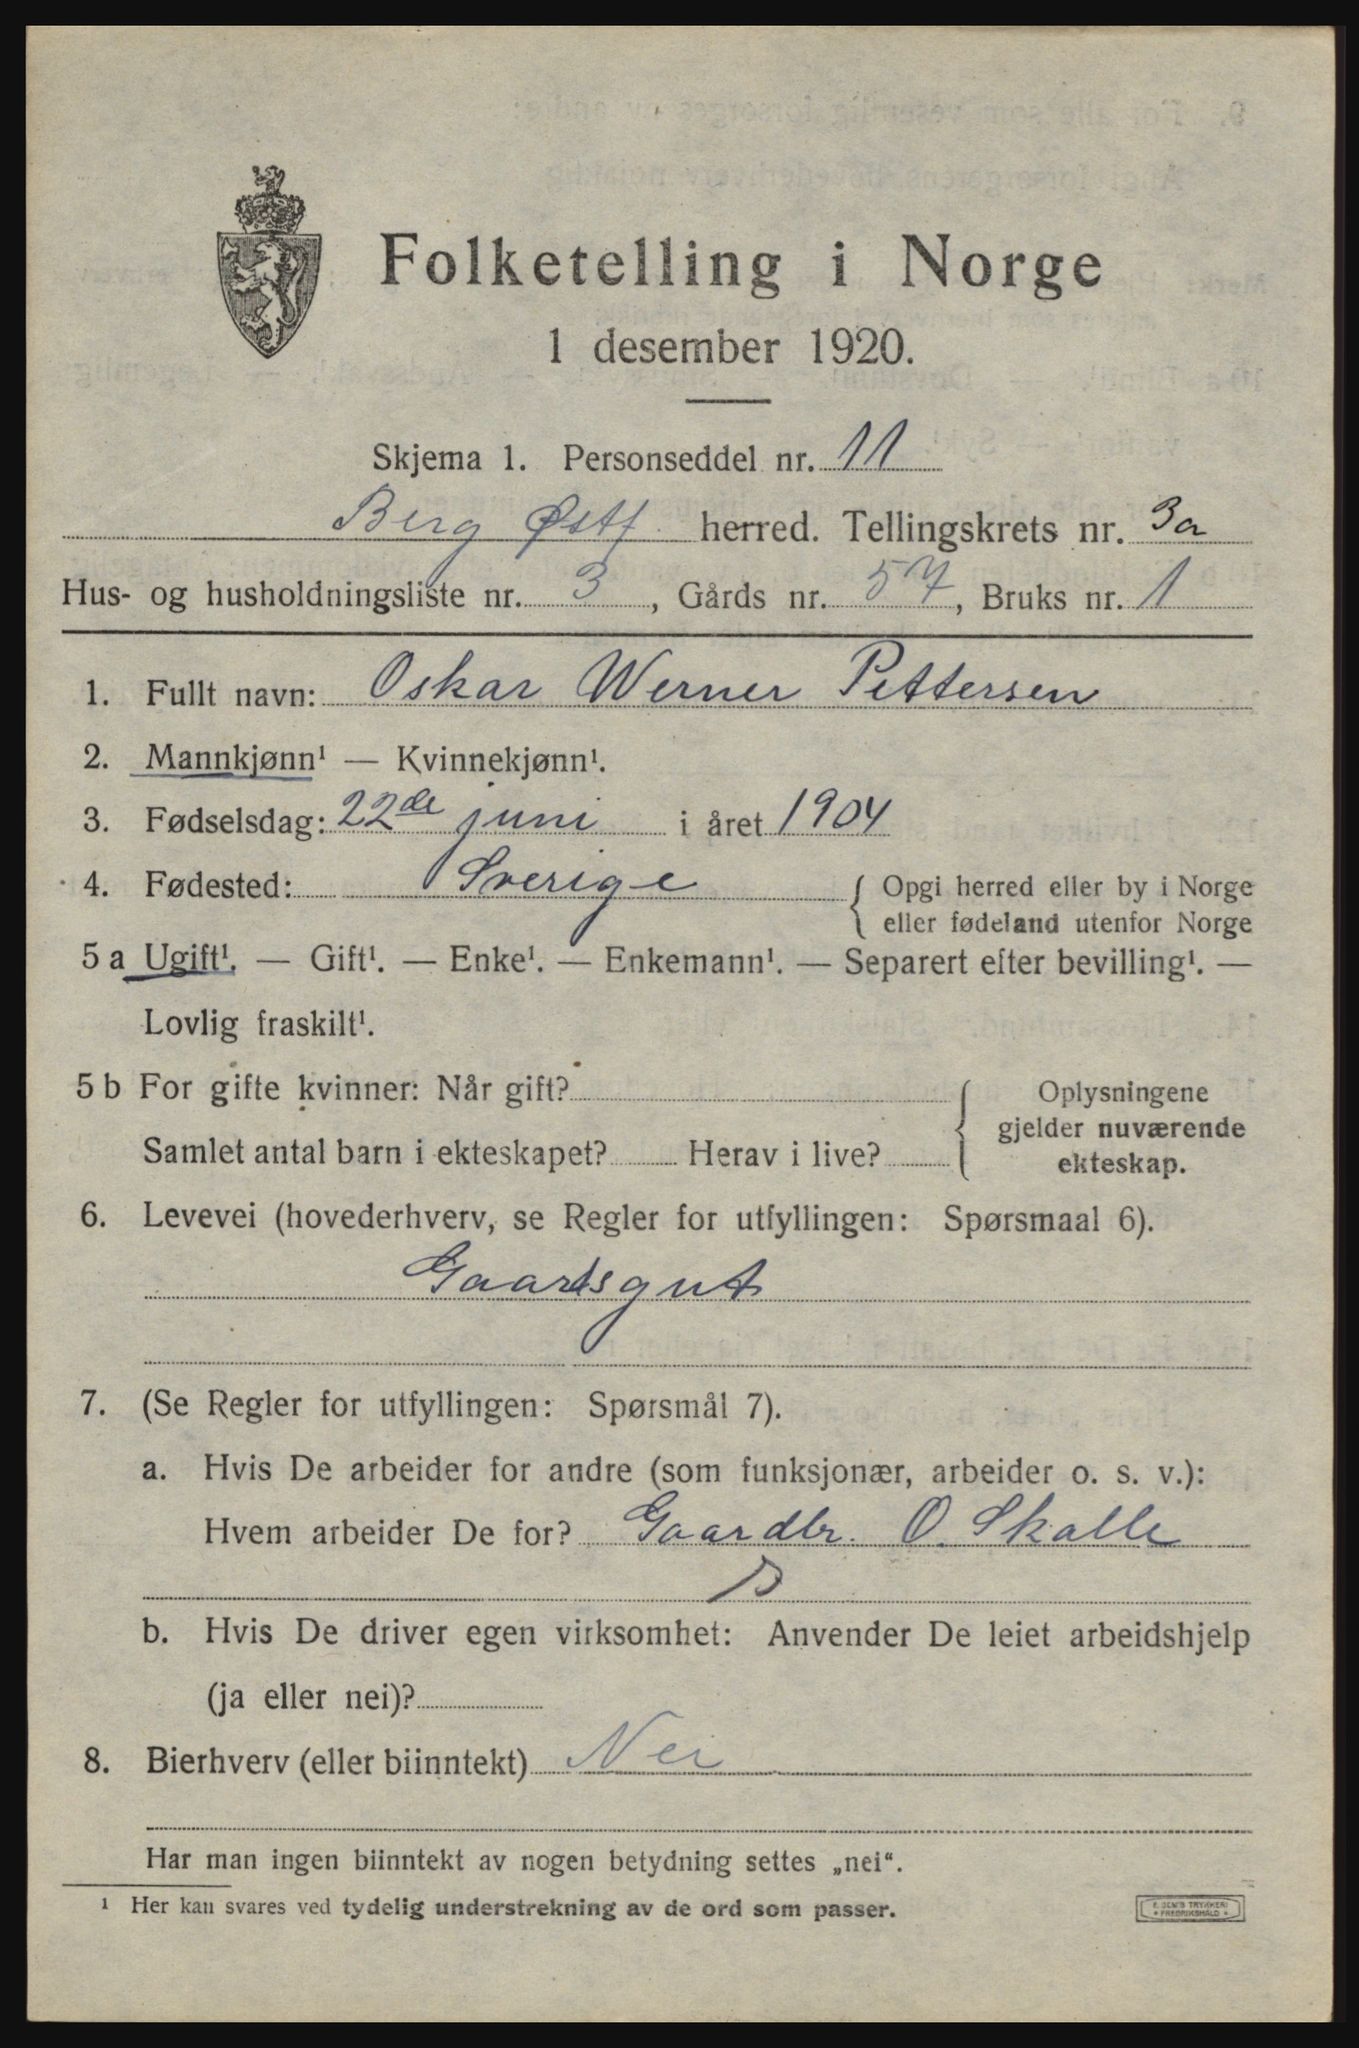 Folketelling i Norge
1 desember 1920.
Skjema 1. Personseddel nr. 11
Berg Østf. herred. Tellingskrets nr. 3a
Hus- og husholdningsliste nr. 3, Gårds nr. 57, Bruks nr. 1
1. Fullt navn: Oskar Werner Pettersen
2. Mannkjønn¹ — Kvinnekjønn¹.
3. Fødselsdag: 22de juni i året 1904
4. Fødested: Sverige { Opgi herred eller by i Norge
eller fødeland utenfor Norge
5 a Ugift¹. — Gift¹. — Enke¹. — Enkemann¹. — Separert efter bevilling¹. —
Lovlig fraskilt¹.
5 b For gifte kvinner: Når gift? { Oplysningene
gjelder nuværende
Samlet antal barn i ekteskapet? Herav i live? ekteskap.
6. Levevei (hovederhverv, se Regler for utfyllingen: Spørsmaal 6).
Gaardsgut
7. (Se Regler for utfyllingen: Spørsmål 7).
a. Hvis De arbeider for andre (som funksjonær, arbeider o. s. v.):
Hvem arbeider De for? Gaardbr. O. Skolle
b. Hvis De driver egen virksomhet: Anvender De leiet arbeidshjelp
(ja eller nei)?
8. Bierhverv (eller biinntekt) Nei
Har man ingen biinntekt av nogen betydning settes „nei“.
¹ Her kan svares ved tydelig understrekning av de ord som passer.
E. SEM'S TRYKKERI
FREDRIKSHALD